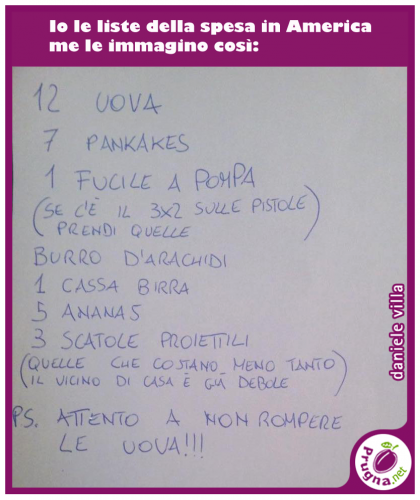 Io le liste della spesa in America
me le immagino così:
12 UOVA
7 PANKAKES
1 FUCILE A POMPA
(SE C'È IL 3X2 SULLE PISTOLE
PRENDI QUELLE)
BURRO D'ARACHIDI
1 CASSA BIRRA
5 ANANAS
3 SCATOLE PROIETTILI
(QUELLE CHE COSTANO MENO TANTO
IL VICINO DI CASA È GIÀ DEBOLE)
PS. ATTENTO A NON ROMPERE
LE UOVA!!!
daniele villa
Prugna.net